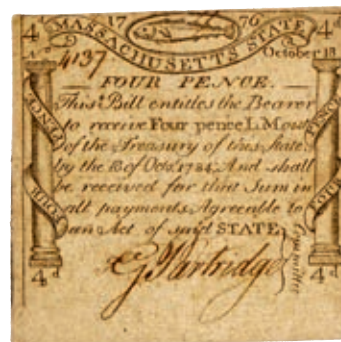 4d 17 76 4d
MASSACHUSETTS STATE
No 4137 October 18
FOUR PENCE.
This Bill entitles the Bearer
to receive Four pence L. Mony
of the Treasury of this State.
by the 18 of Octo. 1784. And shall
be received for that Sum in
all payments Agreeable to
an Act of said STATE
G Partridge
Committee
FOUR PENCE
FOUR PENCE
4d 4d